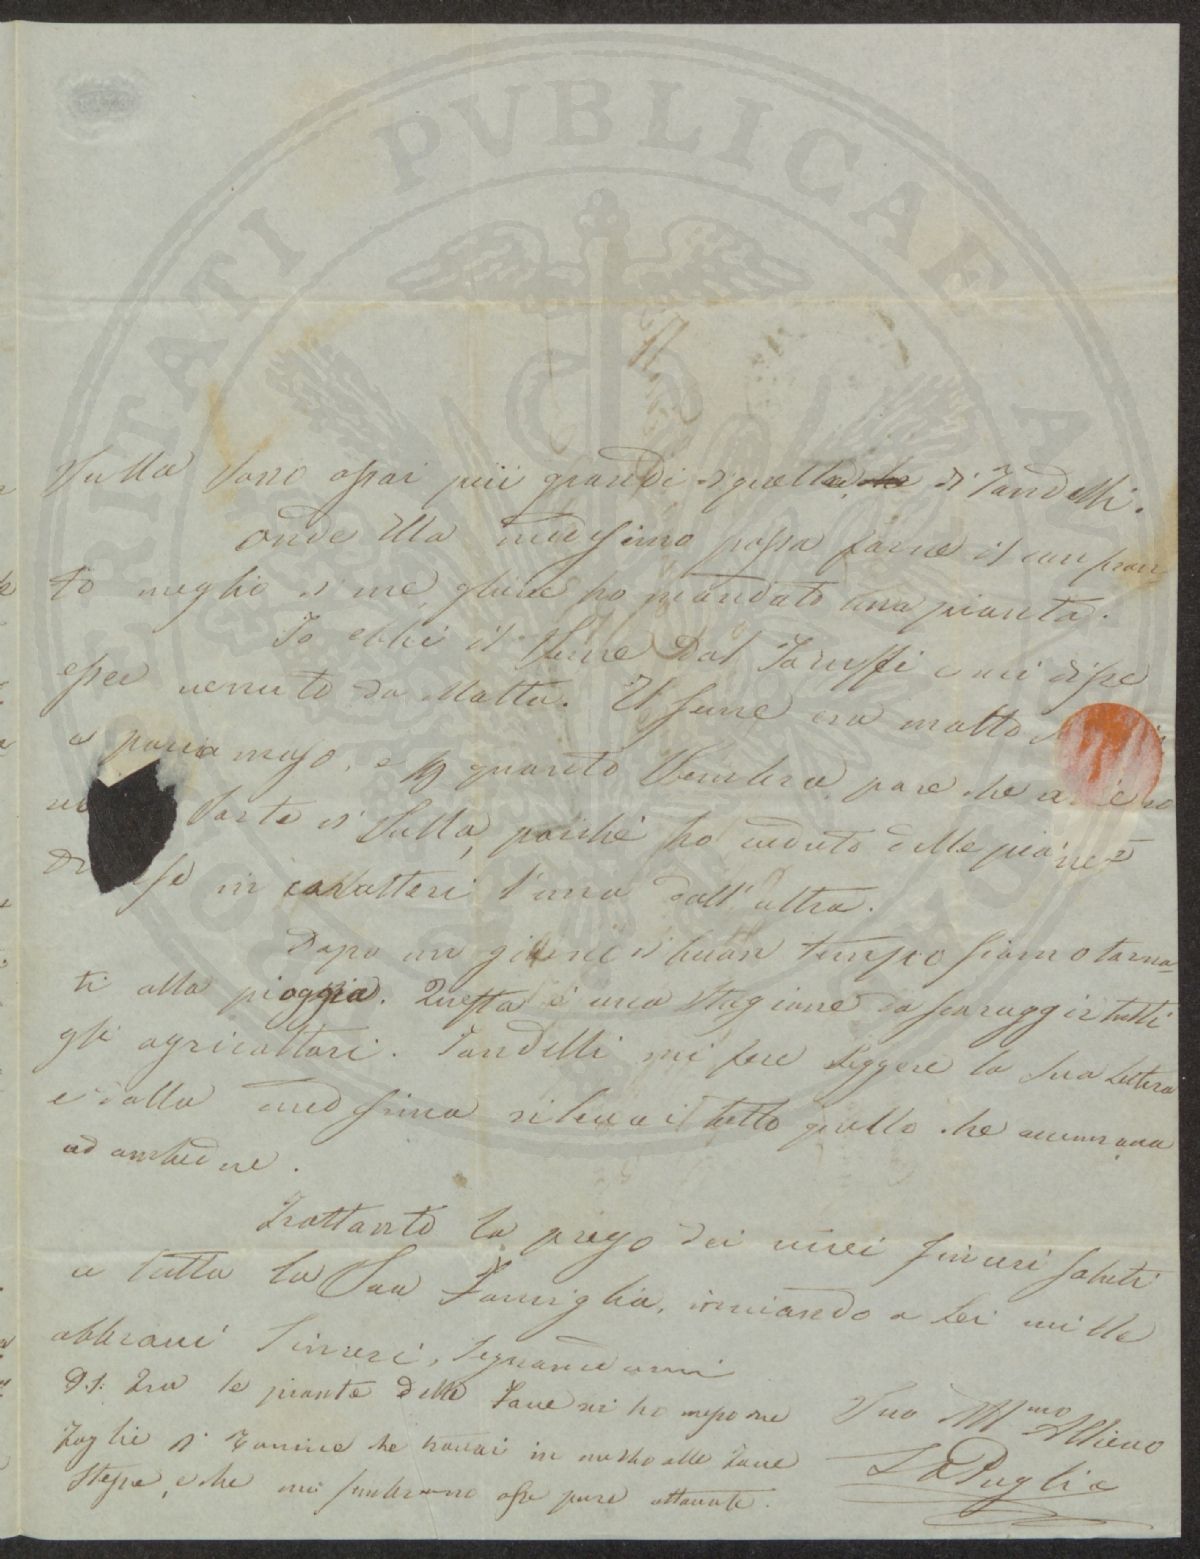 VERITATI PVBLICAE
Sulla sono assai più grandi di quella di Tandelli.
Onde Ella medesimo possa farne il confron
to meglio di me, gliene ho mandato una pianta.
Io ebbi il seme Dal Taruffi e mi disse
esser venuto da Malta. Il seme era molto
a poria mezo, e quanto sembra pare che
sorte di Sulla, poiché ho veduto delle piante
in caratteri l'una dall'altra.
Dopo un giorni di buon tempo siamo torna=
ti alla pioggia. Questa è una stagione da scoraggir tutti
gli agricoltori. Tandelli mi fece leggere la sua lettera
e dalla medesima rilevai tutto quello che
ad ambedue.
Trattanto la prego dei miei sinceri saluti
a tutta la Sua Famiglia, inviando a Lei mille
abbracci sinceri, segnandomi
P.S. Tra le piante delle Fave vi ho messo due
foglie di che trovai in mezzo alle Fave
stesse, e che mi sembrano esse pure attaccate.
Suo Aff.mo Allievo
L DPuglia